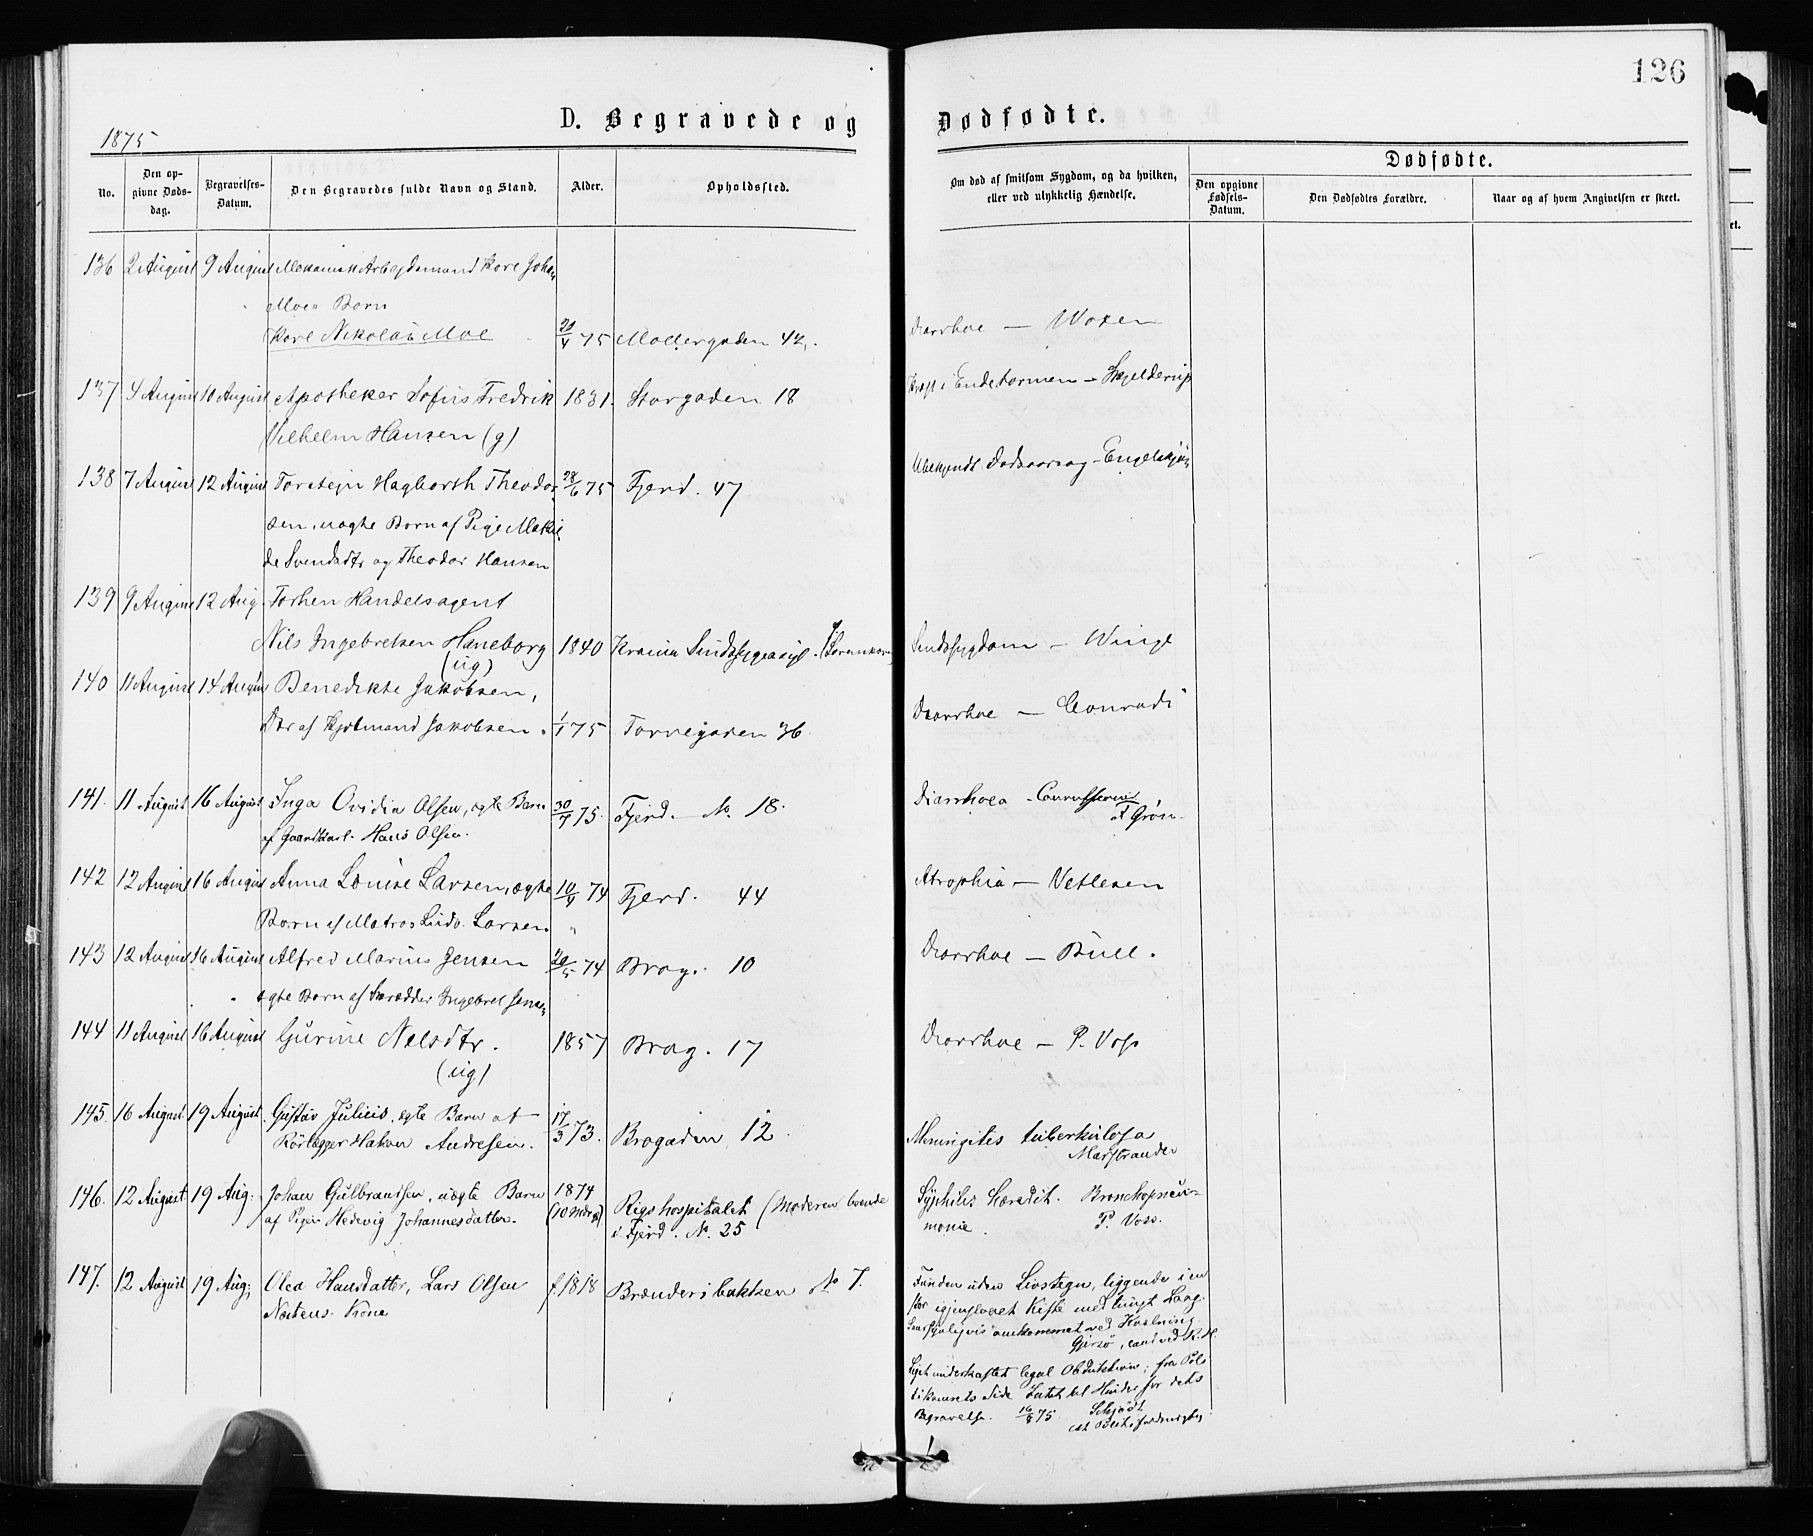 126
D. Begravede og Dødfødte.
1875
No.
Den opgivne Dødsdag.
Begravelses-Datum.
Den Begravedes fulde Navn og Stand.
Alder.
Opholdssted.
Om død af smitsom Sygdom, og da hvilken, eller ved ulykkelig Hændelse.
Dødfødte.
Den opgivne Fødsels-Datum.
Den Dødfødtes Forældre.
Naar og af hvem Angivelsen er skeet.
136 2 August 9 August Mekanisk Arbejdsmand Karl Johan
Moes Barn
Karl Nikolai Moe /4 75 Møllergaden 42. Diarrhoe — Woxen
137 4 August 10 August Apotheker Sofus Fredrik 1831. Storgaden 18 Kræft i Endetarmen — Hejelderup
Vilhelm Hansen (g)
138 7 August 12 August Torstejn Hagbarth Theodor 28/6 75 Fjerd. 47 Ubekjendt Dødsaarsag — Engelskjøn
sen, uægte Barn af Pige Makil
de Svendsdtr og Theodor Hansen
139 9 August 12 Aug. Forhen Handelsagent
Nils Ingebretsen Haneborg 1840 Kra Sindssygeasyl. Sindssygdom — Winge
(ug)
140 11 August 14 August Benedikte Jakobsen,
Dtr af Hjelmand Jakobsen. 1/1 75 Torvegaden 36 Diarrhoe — Conradi
141. 11 August 16 August Inga Ovidia Olsen, ægte Barn 30/7 75. Fjerd. No. 18. Diarrhoea
af Gaardkarl Hans Olsen. F Grøn.
142 12 August 16 August Anna Louise Larsen, ægte 10/4 74 Fjerd. 44 Atrophia — Vetlesen
Barn af Matros Ludv. Larsen
143 12 August 16 August Alfred Marius Jensen 20/5 74 Brog. 10 Diarrhoe — Bull.
ægte Barn af Skrædder Ingebret Jensen
144 11 August 16 August Gurine Nelsdtr. 1857 Brog. 17 Diarrhoe — P. Voss
(ug)
145. 16 August 19 August. Gustav Julius, ægte Barn af 17/3 73. Brogaden 12. Meningites tuberkulosa
Rørlægger Hakon Andresen. Marstrander
146. 12 August 19 Aug. Johan Gulbrandsen, uægte Barn 1874 Rigshospitalet (Moderen boende Syphilis Heredit. Bronchopneu-
af Pigen Hedevig Johannesdatter. (10 Mdr) i Fjerd. No. 25 monie. P. Voss.
147. 12 August 19 Aug. Olea Hansdatter, Lars Olsen f. 1818 Brænderibakken No 7. Funden uden Livstegn, liggende i en
Næstens Kone stor igjenlaaset Kiste med tungt Laag.
omkommet ved Kvælning
Gjersø, cand.
Liget underkastet legal Obduktion; fra Poli
tikamrets Side Intet til Hinder for dets
Begravelse. 16/8 75. Schjødt